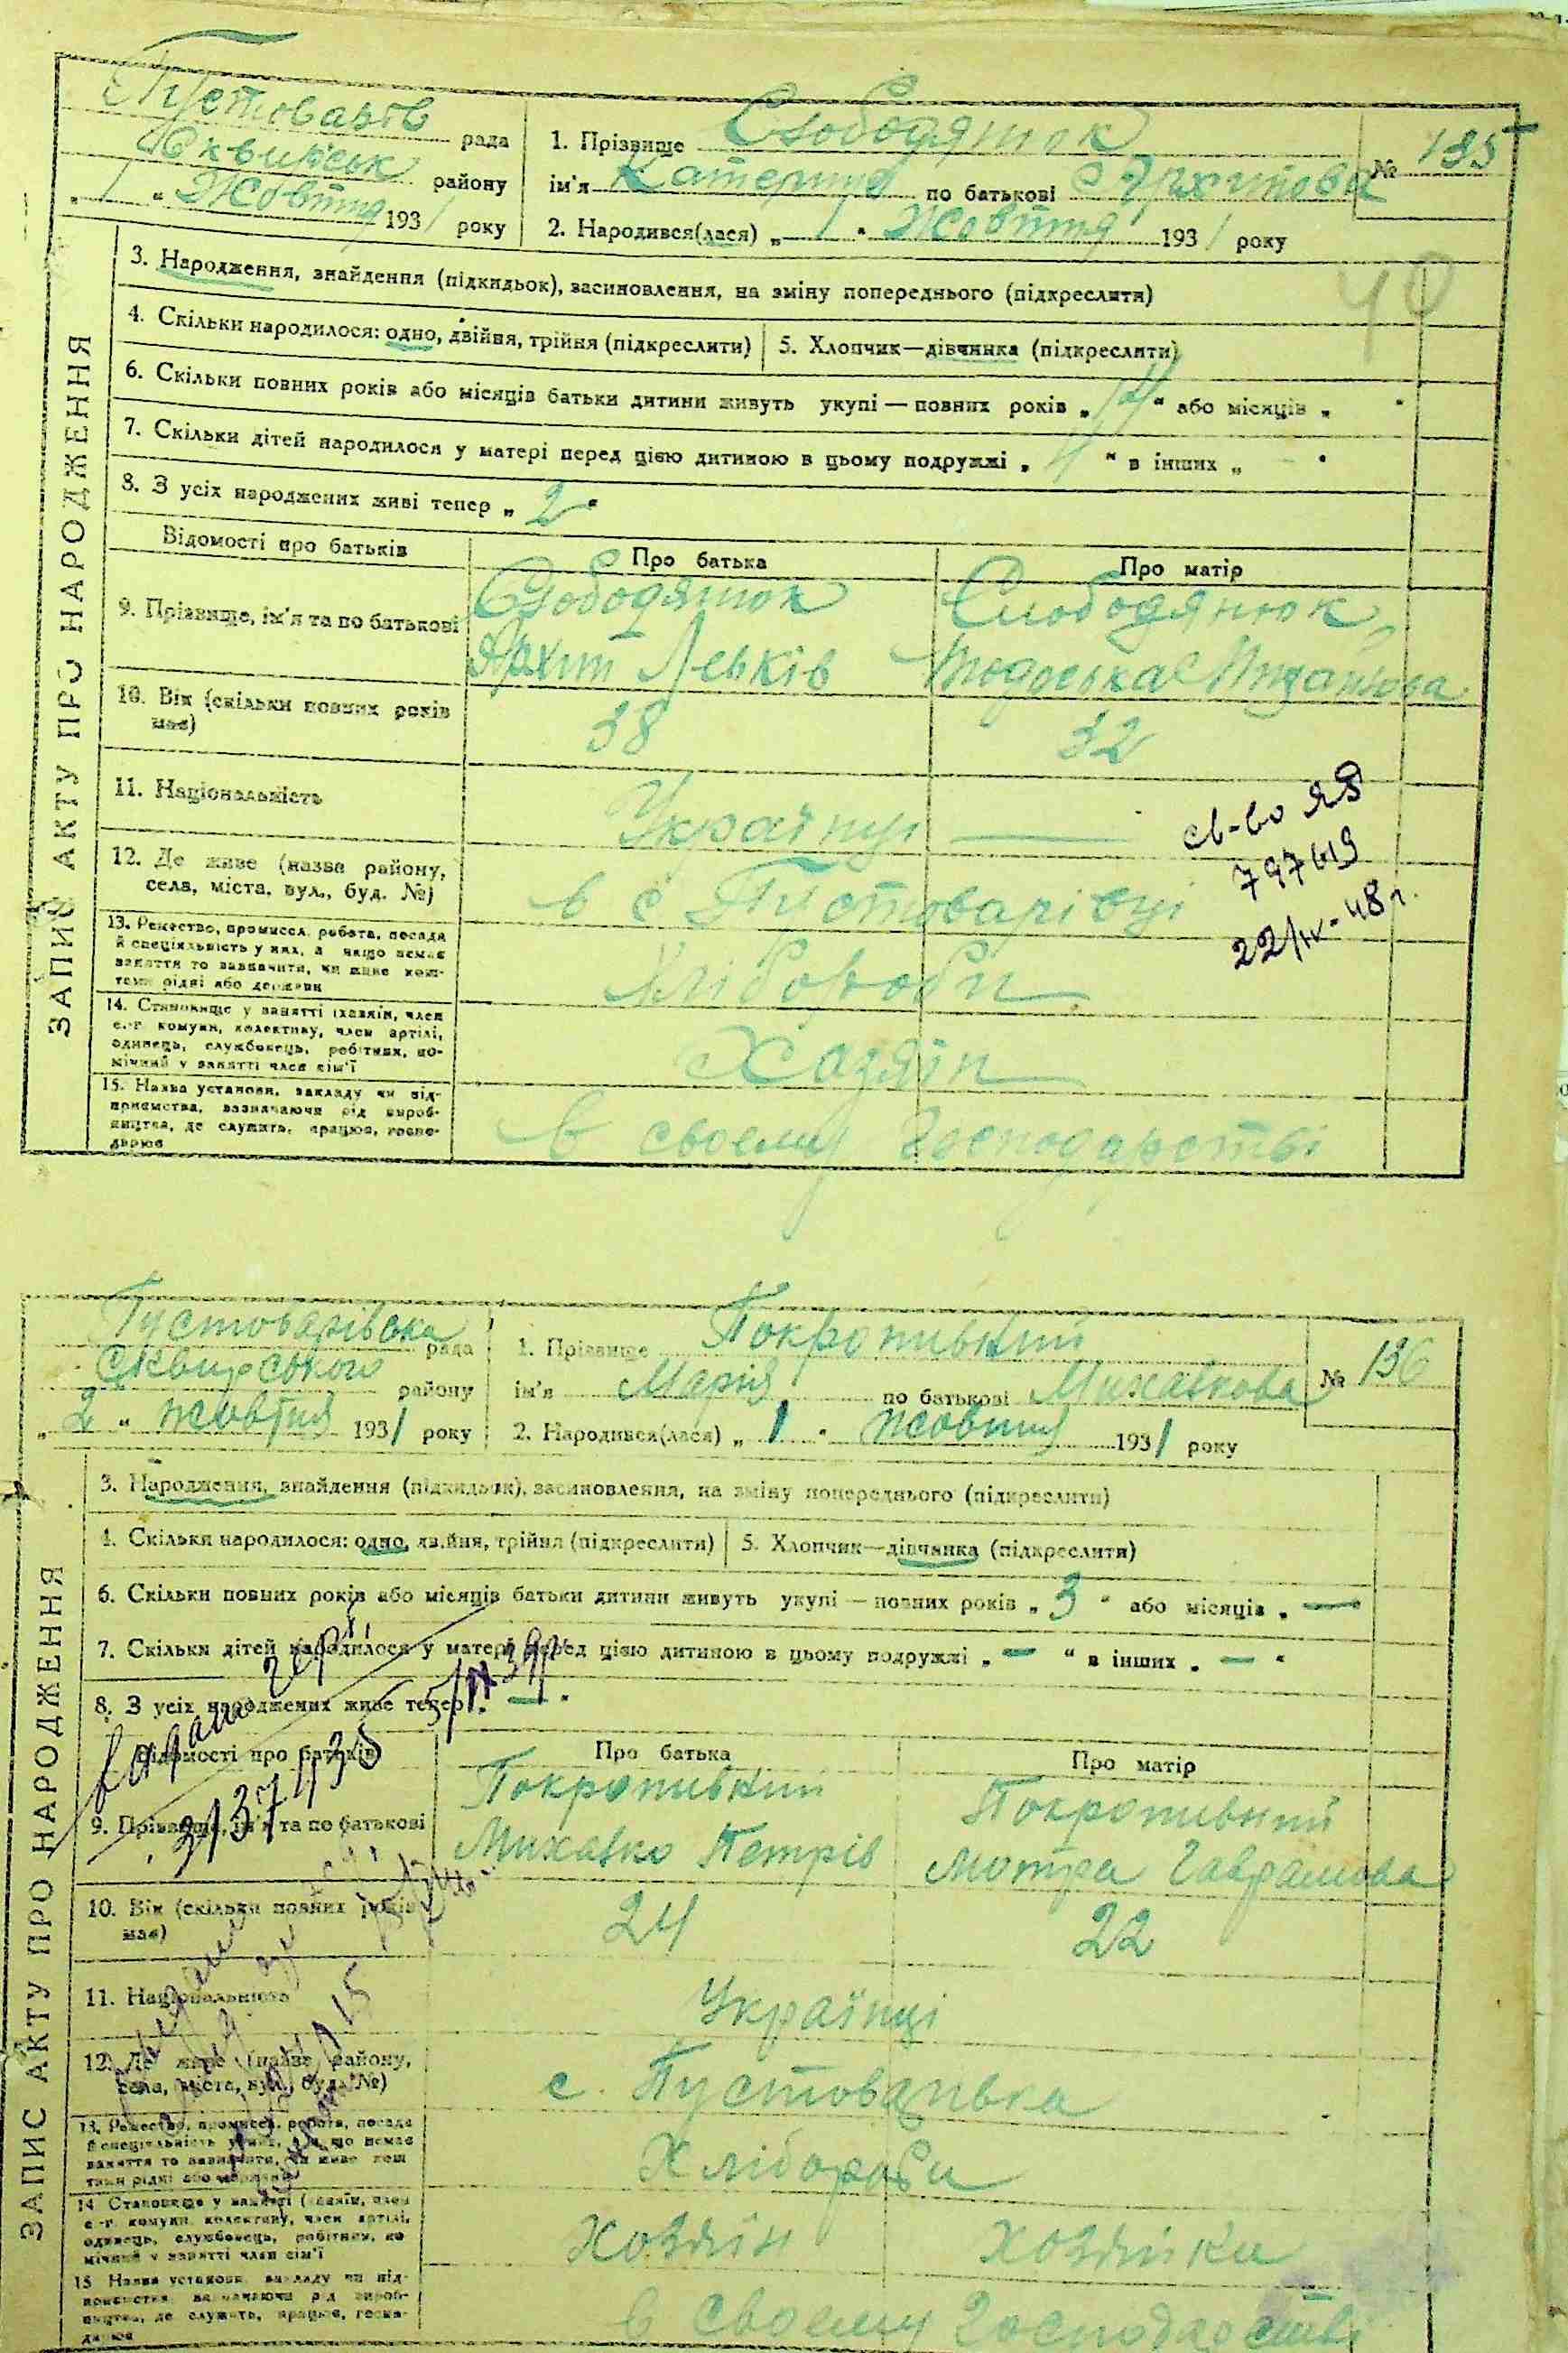 Пустоварів рада
Сквирськ району
„ 1 “ Жовтня 1931 року
1. Прізвище Слободянюк
ім'я Катерина по батькові Архипова
№ 135
2. Народився(лася) „ 1 “ Жовтня 1931 року
40
ЗАПИС АКТУ ПРО НАРОДЖЕННЯ
3. Народження, знайдення (підкидьок), засиновлення, на зміну попереднього (підкреслити)
4. Скільки народилося: одно, двійня, трійня (підкреслити) 5. Хлопчик—дівчинка (підкреслити)
6. Скільки повних років або місяців батьки дитини живуть укупі — повних років „ “ або місяців „ “
7. Скільки дітей народилося у матері перед цією дитиною в цьому подружжі „ 4 “ в інших „ – “
8. З усіх народжених живі тепер „ 2 “
Відомості про батьків Про батька Про матір
9. Прізвище, ім'я та по батькові
Слободянюк Слободянюк
Архип Леськів Тодоська
10. Вік (скільки повних років має) 38 32
11. Національність Українці —
св-во ЯБ
22/IV-48 г.
12. Де живе (назва району, села, міста, вул., буд. №) в с Пустоварівці
13. Ремество, промисел, робота, посада й спеціяльність у них, а якщо немає заняття то зазначити, чи живе коштами рідні або держави
Хлібороби
14. Становище у занятті (хазяїн, член с.-г. комуни, колективу, член артілі, одинець, службовець, робітник, помічний у занятті член сім'ї
Хазяїн
15. Назва установи, закладу чи підприємства, зазначаючи рід виробництва, де служить, працює, господарює
в своєму господарстві
Пустоварівська рада
Сквирського району
„ 2 “ жовтня 1931 року
1. Прізвище Покропивний
ім'я Марія по батькові Михайкова
№ 136
2. Народився(лася) „ 1 “ жовтня 1931 року
ЗАПИС АКТУ ПРО НАРОДЖЕННЯ
3. Народження, знайдення (підкидьок), засиновлення, на зміну попереднього (підкреслити)
4. Скільки народилося: одно, двійня, трійня (підкреслити) 5. Хлопчик—дівчинка (підкреслити)
6. Скільки повних років або місяців батьки дитини живуть укупі — повних років „ 3 “ або місяців „ — “
7. Скільки дітей народилося у матері перед цією дитиною в цьому подружжі „ — “ в інших „ — “
8. З усіх народжених живе тепер „ — “
Відомості про батьків Про батька Про матір
9. Прізвище, ім'я та по батькові
Покропивний Покропивний
Михайко Петрів Мотря Гаврилова
10. Вік (скільки повних років має) 24 22
11. Національність Українці
12. Де живе (назва району, села, міста, вул., буд. №) с. Пустоварівка
13. Ремество, промисел, робота, посада й спеціяльність у них, а якщо немає заняття то зазначити, чи живе коштами рідні або держави
Хлібороби
14. Становище у занятті (хазяїн, член с.-г. комуни, колективу, член артілі, одинець, службовець, робітник, помічний у занятті член сім'ї
Хозяїн Хозяйка
15. Назва установи, закладу чи підприємства, зазначаючи рід виробництва, де служить, працює, господарює
в своєму господарстві